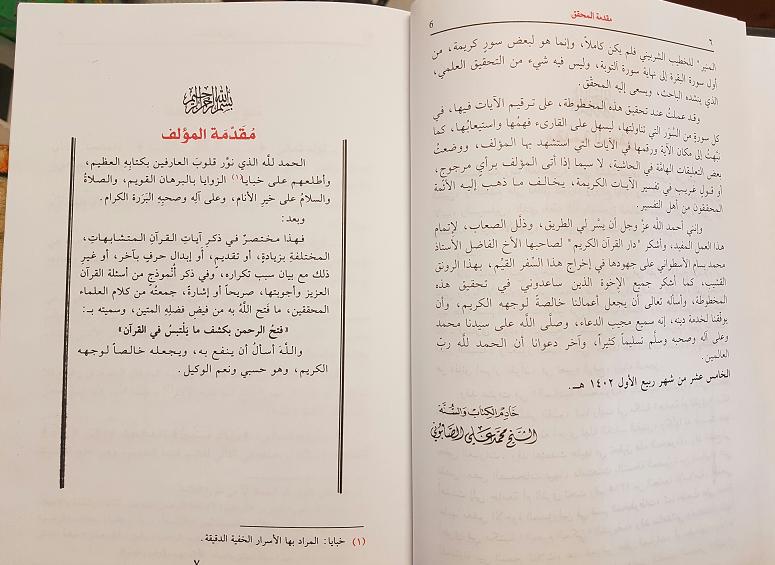 مقدمة المحقق
٦
6
المنير" للخطيب الشربيني فلم يكن كاملاً، وإنما هو لبعض سورٍ كريمة، من
أول سورة البقرة إلى نهاية سورة التوبة، وليس فيه شيء من التحقيق العلمي،
الذي ينشده الباحث، ويسعى إليه المحقّق.
وقد عملتُ عند تحقيق هذه المخطوطة، على ترقيم الآيات فيها، في
كل سورةٍ من السُّوَر التي تناولتها، ليسهل على القارىء فهمُها واستيعابُها، كما
نبَّهتُ إلى مكان الآية ورقمها في الآيات التي استشهد بها المؤلف، ووضعتُ
بعض التعليقات الهامَّة في الحاشية، لا سيما إذا أتى المؤلف برأي مرجوحٍ،
أو قولٍ غريب في تفسير الآيات الكريمة، يخالف ما ذهب إليه الأئمة
المحققون من أهل التفسير.
وإنني أحمد الله عزَّ وجل أن يسَّر لي الطريق، وذلَّل الصعاب، لإتمام
هذا العمل المفيد، وأشكر "دار القرآن الكريم" لصاحبها الأخ الفاضل الأستاذ
محمد بسام الأسطواني على جهودها في إخراج هذا السِّفر القيِّم، بهذا الرونق
القشيب، كما أشكر جميع الإخوة الذين ساعدوني في تحقيق هذه
المخطوطة، وأسأله تعالى أن يجعل أعمالنا خالصةً لوجهه الكريم، وأن
يوفِّقنا لخدمة دينه، إنه سميع مجيب الدعاء، وصلَّى الله على سيدنا محمد
وعلى آله وصحبه وسلَّم تسليماً كثيراً، وآخر دعوانا أن الحمد لله ربِّ
العالمين.
الخامس عشر من شهر ربيع الأول ١٤٠٢ هـ.
خَادِمُ الكِتَابِ وَالسُّنَّة
الشيخ محمد علي الصابوني
بسم الله الرحمن الرحيم
مُقَدّمَة المؤلف
الحمد لله الذي نوَّر قلوبَ العارفين بكتابِهِ العظيم،
وأطلعهم على خبايا(١) الزوايا بالبرهان القويم، والصلاةُ
والسلامُ على خيرِ الأنام، وعلى آله وصحبِهِ البَرَرة الكرام.
وبعد:
فهذا مختصرٌ في ذكر آيات القرآن المتشابهاتِ،
المختلفةِ بزيادةٍ، أو تقديم، أو إبدال حرفٍ بآخر، أو غيرِ
ذلك مع بيان سبب تكراره، وفي ذكر أُنموذج من أسئلة القرآن
العزيز وأجوبتها، صريحاً أو إشارةً، جمعتُه من كلام العلماء
المحققين، ما فَتح اللَّهُ به من فيض فضلِهِ المتين، وسميته بـ:
«فتحُ الرحمن بكشف ما يَلْتبسُ في القرآن»
واللَّهَ أسألُ أن ينفع به، ويجعله خالصاً لوجهه
الكريم، وهو حسبي ونعم الوكيل.
(١) خبايا: المراد بها الأسرار الخفية الدقيقة.
٧